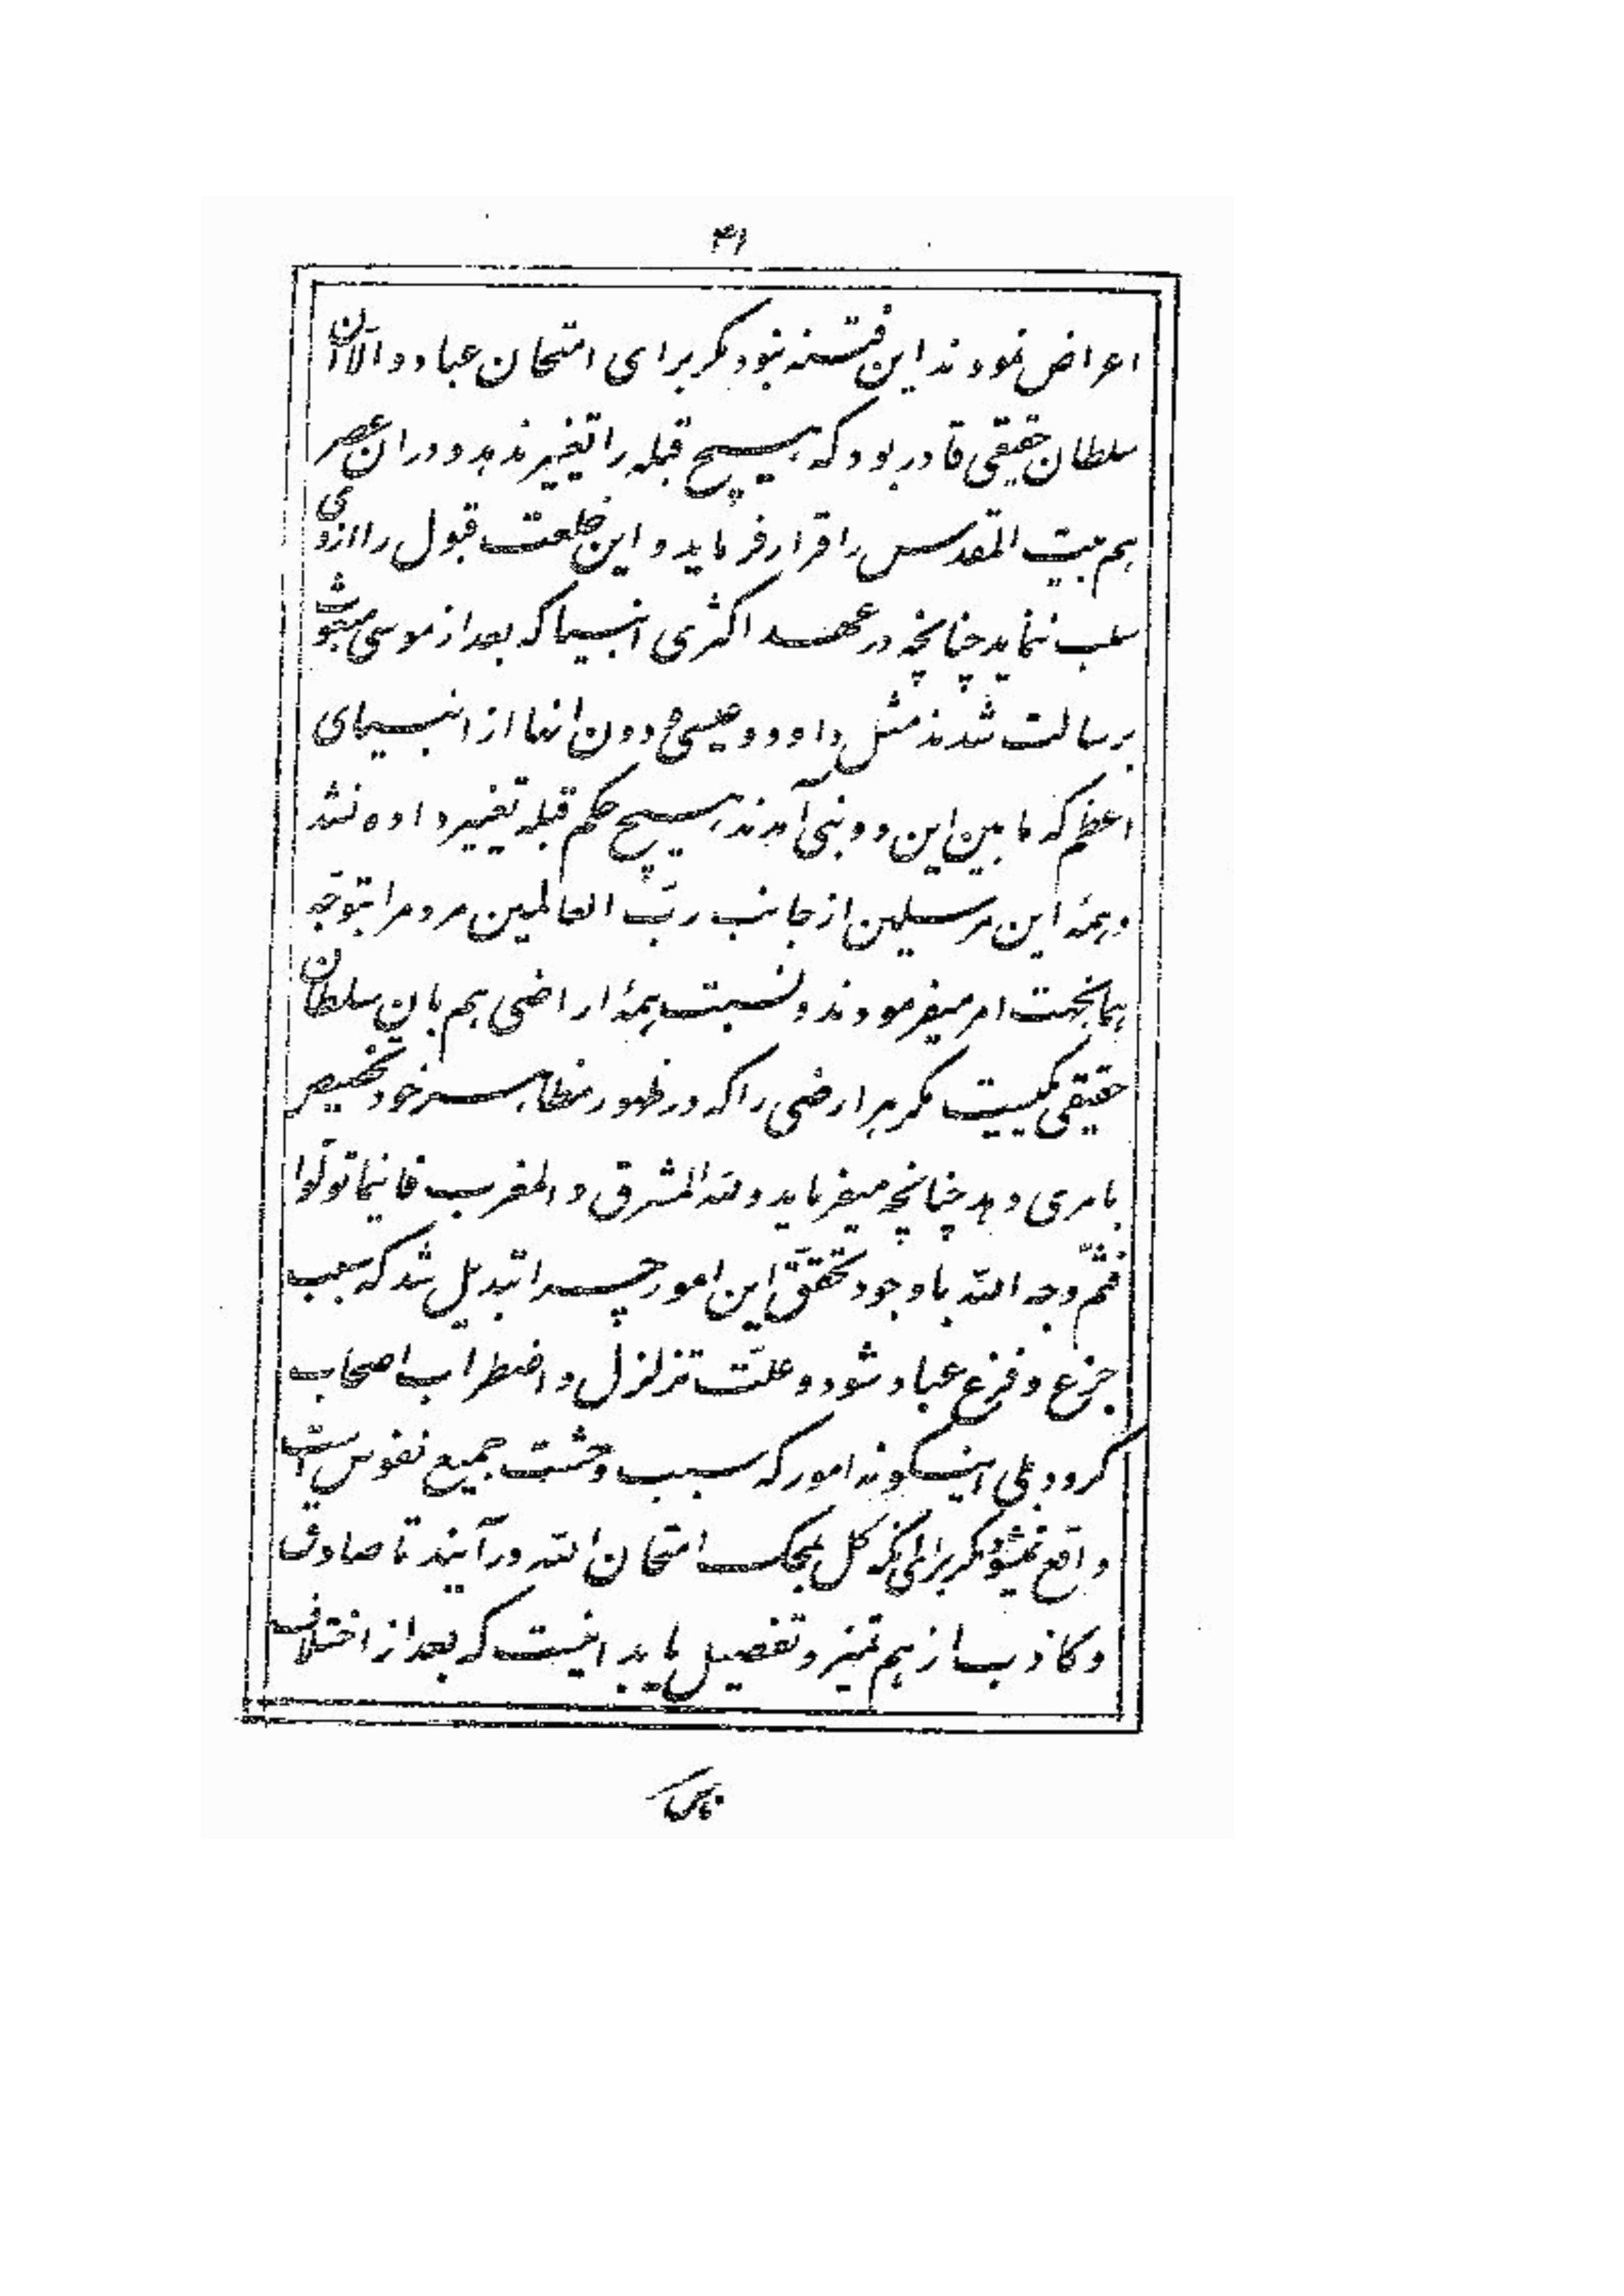 ۴۱
اعراض نمودند این فتنه نبود مگر برای امتحان عباد و الا آن
سلطان حقیقی قادر بود که هیچ قبله را تغییر ندهد و در ان عصر
هم بیت المقدس را قرار فرماید و این خلعت قبول را از وی
سلب ننماید چنانچه در عهد اکثری انبیا که بعد از موسی مبعوث
برسالت شدند مثل داود و عیسی و دون انها از انبیای
اعظم که ما بین این دو نبی آمدند هیچ حکم قبله تغییر داده نشد
و همهٔ این مرسلین از جانب ربّ العالمین مردم را بتوجّه
بهمانجهت امر میفرمودند و نسبت همهٔ اراضی هم بان سلطان
حقیقی یکیست مگر هر ارضی را که در ظهور مظاهر خود تخصیص
بامری دهد چنانچه میفرماید و لله المشرق و المغرب فاینما تولّوا
فثمّ وجه الله با وجود تحقّق این امور چرا تبدیل شد که سبب
جزع و فزع عباد شود و علّت تزلزل و اضطراب اصحاب
گردد بلی اینگونه امور که سبب وحشت جمیع نفوس است
واقع نمیشود مگر برای انکه کل بمحک امتحان الله درآیند تا صادق
و کاذب از هم تمیز و تفصیل یابد اینست که بعد از اختلاف
ناس